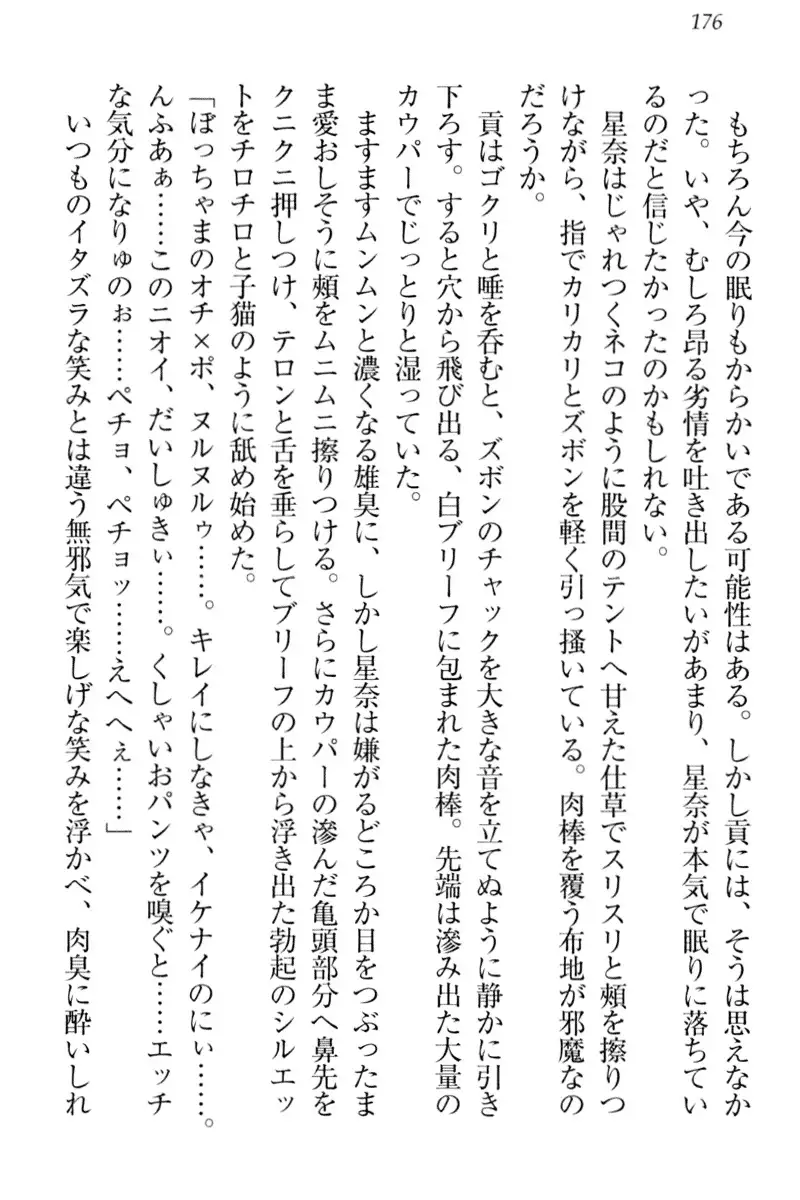 176
もちろん今の眠りもからかいである可能性はある。しかし貢には、そうは思えなか
った。いや、むしろ昂る劣情を吐き出したいがあまり、星奈が本気で眠りに落ちてい
るのだと信じたかったのかもしれない。
星奈はじゃれつくネコのように股間のテントへ甘えた仕草でスリスリと頰を擦りつ
けながら、指でカリカリとズボンを軽く引っ掻いている。肉棒を覆う布地が邪魔なの
だろうか。
貢はゴクリと唾を呑むと、ズボンのチャックを大きな音を立てぬように静かに引き
下ろす。すると穴から飛び出る、白ブリーフに包まれた肉棒。先端は滲み出た大量の
カウパーでじっとりと湿っていた。
ますますムンムンと濃くなる雄臭に、しかし星奈は嫌がるどころか目をつぶったま
ま愛おしそうに頰をムニムニ擦りつける。さらにカウパーの滲んだ亀頭部分へ鼻先を
クニクニ押しつけ、テロンと舌を垂らしてブリーフの上から浮き出た勃起のシルエッ
トをチロチロと子猫のように舐め始めた。
「ぼっちゃまのオチ×ポ、ヌルヌルゥ……。キレイにしなきゃ、イケナイのにぃ……。
んふあぁ……このニオイ、だいしゅきぃ……。くしゃいおパンツを嗅ぐと……エッチ
な気分になりゅのぉ……ペチョ、ペチョッ……えへへぇ……」
いつものイタズラな笑みとは違う無邪気で楽しげな笑みを浮かべ、肉臭に酔いしれ